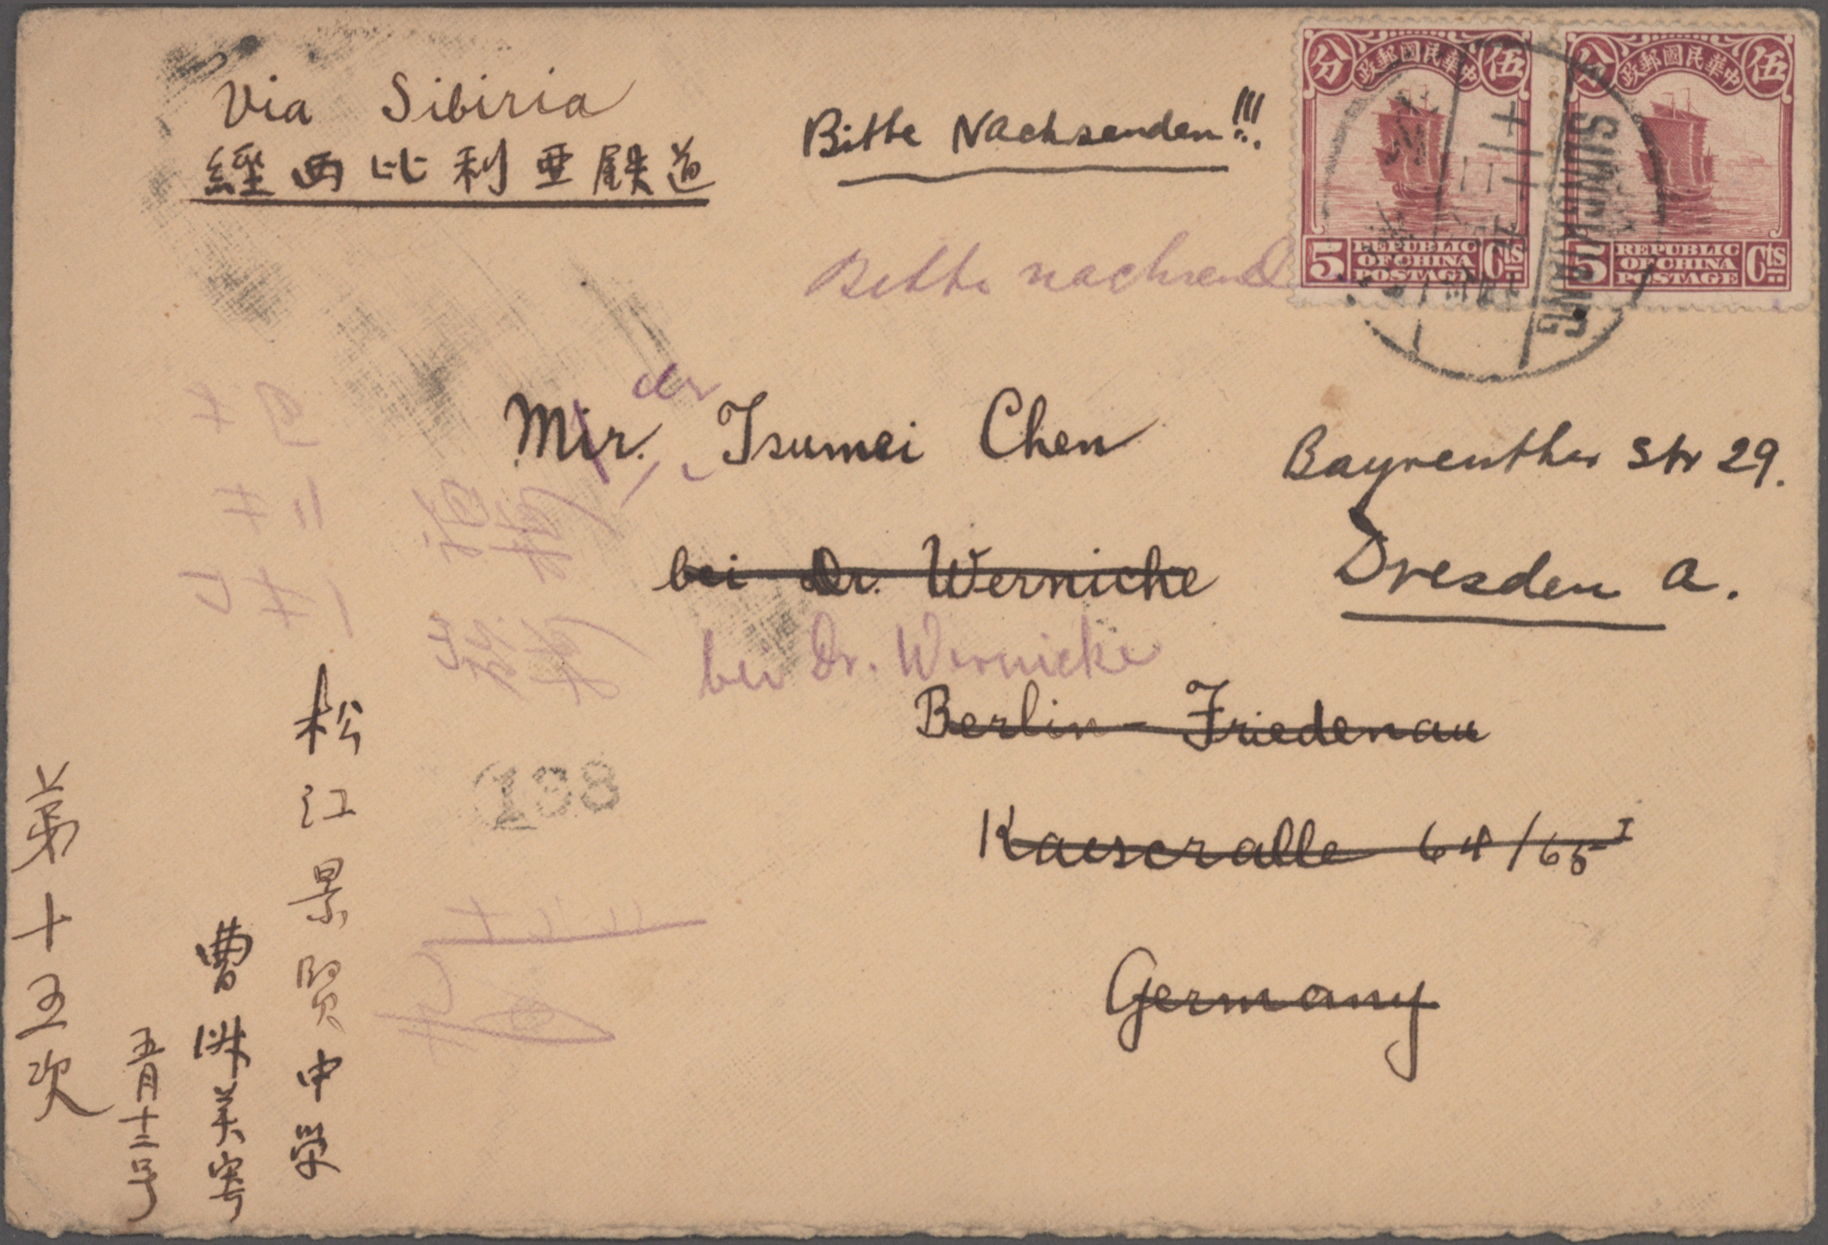 Via Sibiria
經西比利亜鐵道
Bitte Nachsenden!!!
Bitte nachsend
中華民國郵政
伍 分
5 REPUBLIC OF CHINA POSTAGE Cts
中華民國郵政
伍 分
5 REPUBLIC OF CHINA POSTAGE Cts
SUNGKIANG
der
Mir. Tsumei Chen
Bayreuther Str 29.
bei Dr. Wernicke
Dresden A.
bei Dr. Wernicke
Berlin-Friedenau
138
Kaiseralle 64/65 I
Germany
松江景賢中学
曹淑英寄
五月十二号
第十五次